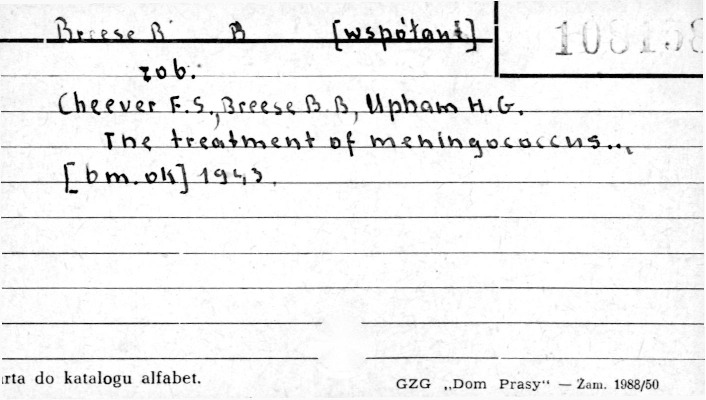 Breese B B [współaut]
zob.
Cheever F.S., Breese B.B, Upham H.G.
The treatment of meningococcus...
[bm. ok] 1943.
arta do katalogu alfabet.
GZG „Dom Prasy“ — Zam. 1988/50